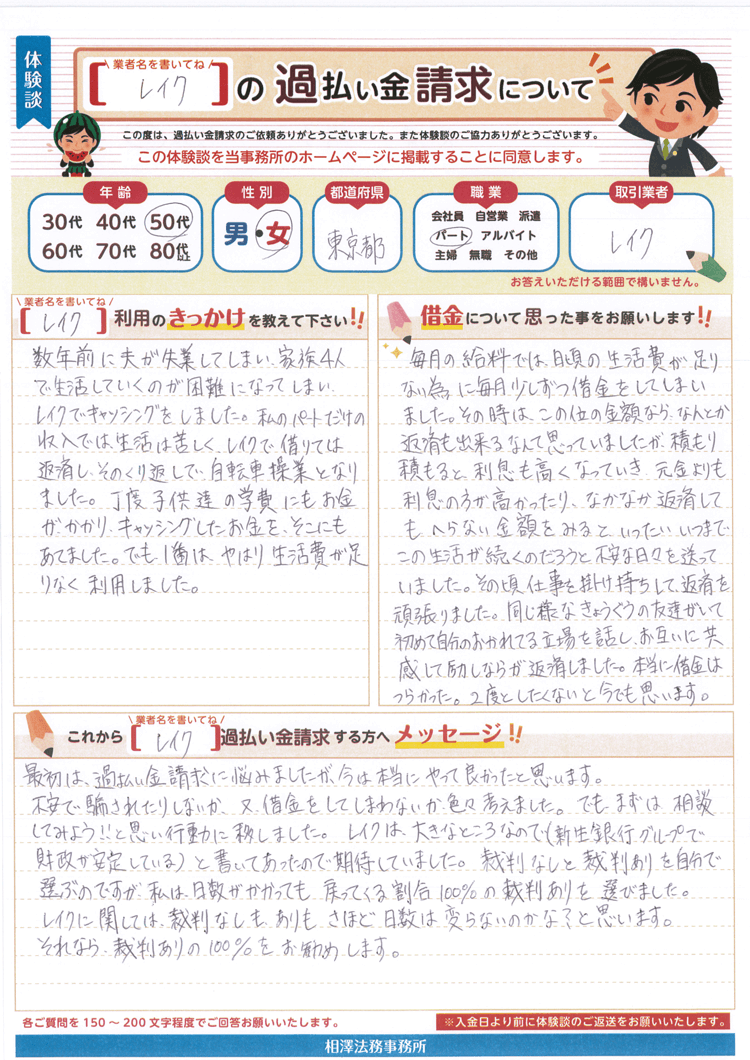 体験談
\業者名を書いてね/
[レイク]の過払い金請求について
この度は、過払い金請求のご依頼ありがとうございました。また体験談のご協力ありがとうございます。
この体験談を当事務所のホームページに掲載することに同意します。
年齢
30代 40代 50代
60代 70代 80代以上
性別
男・女
都道府県
東京都
職業
会社員 自営業 派遣
パート アルバイト
主婦 無職 その他
取引業者
レイク
お答えいただける範囲で構いません。
\業者名を書いてね/
[レイク]利用のきっかけを教えて下さい!!
数年前に夫が失業してしまい、家族4人
で生活していくのが困難になってしまい、
レイクでキャッシングをしました。私のパートだけの
収入では、生活は苦しく、レイクで借りては
返済し、そのくり返しで、自転車操業となり
ました。丁度子供達の学費にもお金
がかかり、キャッシングしたお金を、そこにも
あてました。でも1番は、やはり生活費が足
りなく利用しました。
借金について思った事をお願いします!!
毎月の給料では、日頃の生活費が足り
ない為に毎月少しずつ借金をしてしまい
ました。その時は、この位の金額なら、なんとか
返済も出来るなんて思っていましたが、積もり
積もると、利息も高くなっていき、元金よりも
利息の方が高かったり、なかなか返済して
も、へらない金額をみると、いったいいつまで
この生活が続くのだろうと不安な日々を送って
いました。その頃仕事を掛け持ちして、返済を
頑張りました。同じ様なきょうぐうの友達がいて
初めて自分のおかれてる立場を話し、お互いに共
感して励しながら返済しました。本当に借金は
つらかった。2度としたくないと今でも思います。
\業者名を書いてね/
これから[レイク]過払い金請求する方へメッセージ!!
最初は、過払い金請求に悩みましたが、今は本当にやって良かったと思います。
不安で騙されたりしないか、又、借金をしてしまわないか色々考えました。でもまずは相談
してみよう!!と思い行動に移しました。レイクは、大きなところなので(新生銀行グループで
財政が安定している)と書いてあったので期待していました。裁判なしと裁判ありを自分で
選ぶのですが、私は、日数がかかっても戻ってくる割合100%の裁判ありを選びました。
レイクに関しては、裁判なしも、ありも、さほど日数は変らないのかな?と思います。
それなら、裁判ありの100%をお勧めします。
各ご質問を150～200文字程度でご回答お願いいたします。
※入金日より前に体験談のご返送をお願いいたします。
相澤法務事務所